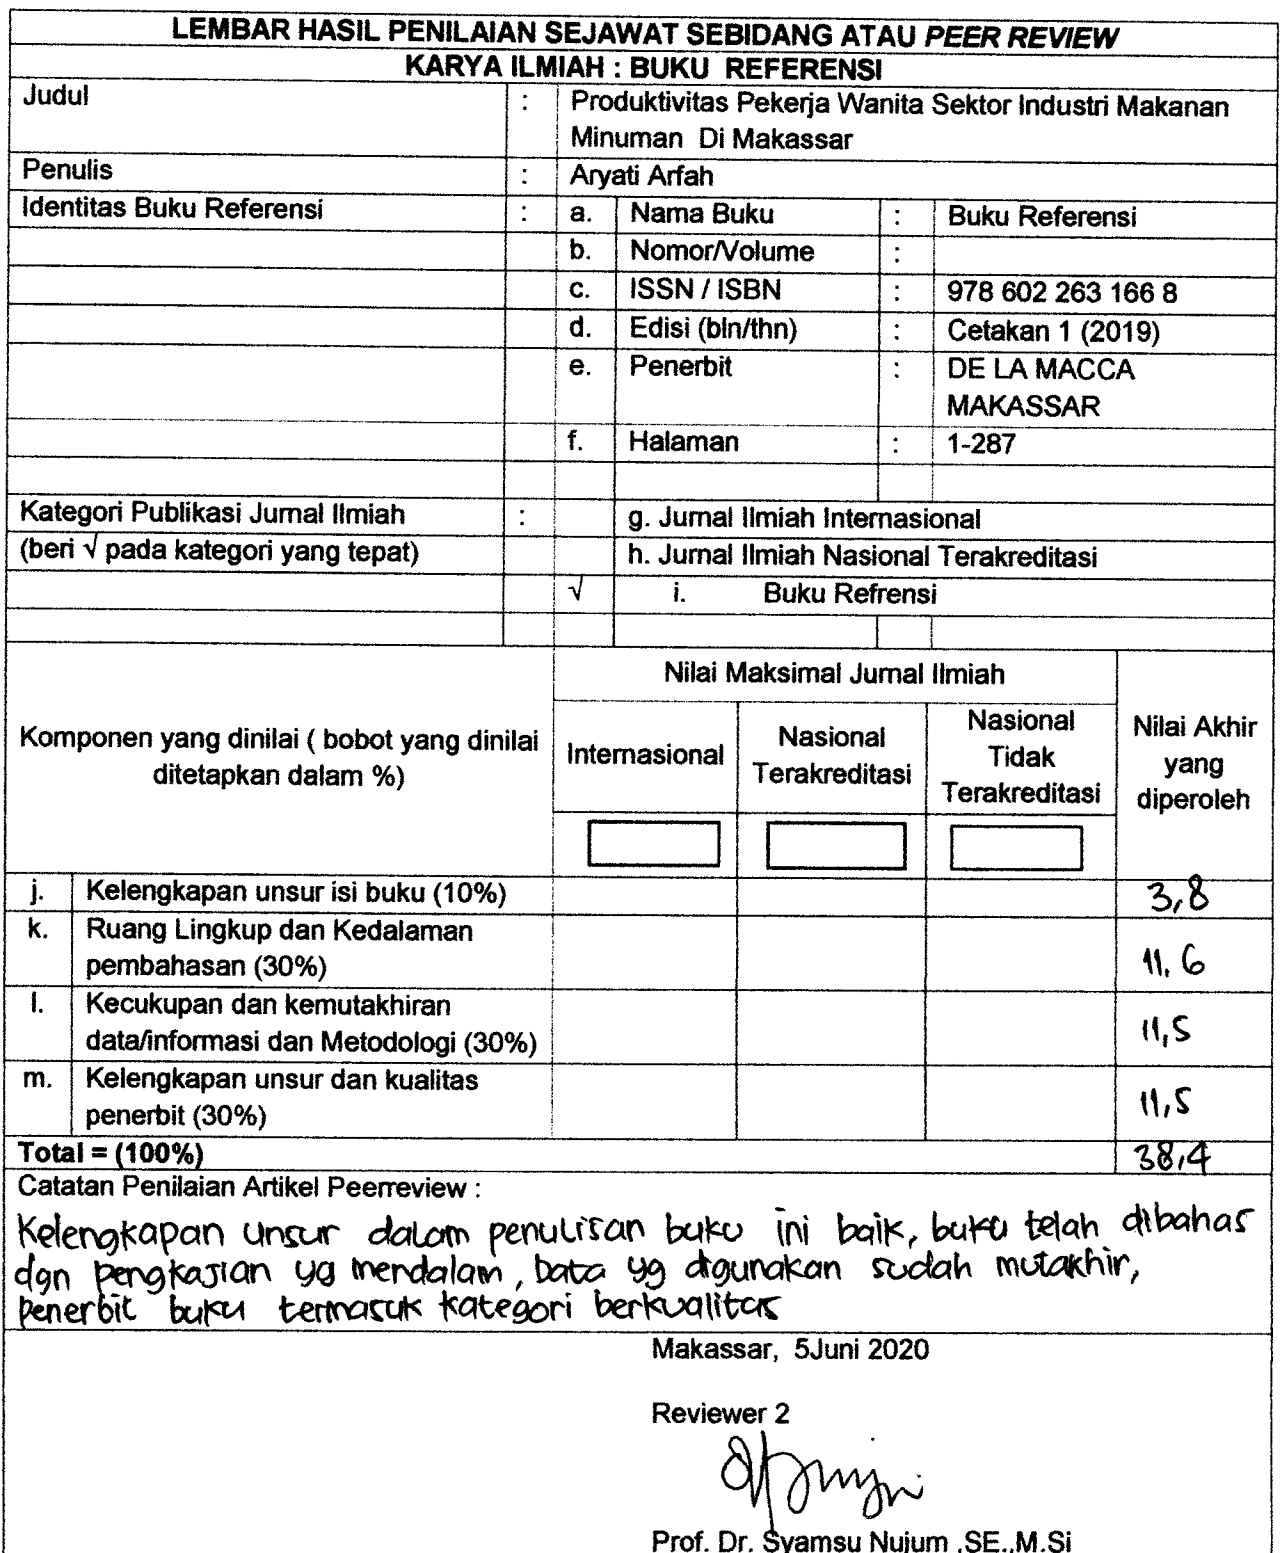 LEMBAR HASIL PENILAIAN SEJAWAT SEBIDANG ATAU PEER REVIEW
KARYA ILMIAH : BUKU REFERENSI
Judul : Produktivitas Pekerja Wanita Sektor Industri Makanan
Minuman Di Makassar
Penulis : Aryati Arfah
Identitas Buku Referensi : a. Nama Buku : Buku Referensi
b. Nomor/Volume :
c. ISSN / ISBN : 978 602 263 166 8
d. Edisi (bln/thn) : Cetakan 1 (2019)
e. Penerbit : DE LA MACCA
MAKASSAR
f. Halaman : 1-287
Kategori Publikasi Jurnal Ilmiah : g. Jurnal Ilmiah Internasional
(beri √ pada kategori yang tepat) h. Jurnal Ilmiah Nasional Terakreditasi
√ i. Buku Refrensi
Nilai Maksimal Jurnal Ilmiah
Komponen yang dinilai ( bobot yang dinilai
ditetapkan dalam %)
Internasional
Nasional
Terakreditasi
Nasional
Tidak
Terakreditasi
Nilai Akhir
yang
diperoleh
j. Kelengkapan unsur isi buku (10%) 3,8
k. Ruang Lingkup dan Kedalaman
pembahasan (30%) 11,6
l. Kecukupan dan kemutakhiran
data/informasi dan Metodologi (30%) 11,5
m. Kelengkapan unsur dan kualitas
penerbit (30%) 11,5
Total = (100%) 38,4
Catatan Penilaian Artikel Peerreview :
Kelengkapan unsur dalam penulisan buku ini baik, buku telah dibahas
dgn pengkajian yg mendalam, data yg digunakan sudah mutakhir,
penerbit buku termasuk kategori berkualitas
Makassar, 5Juni 2020
Reviewer 2
Prof. Dr. Syamsu Nujum ,SE.,M.Si